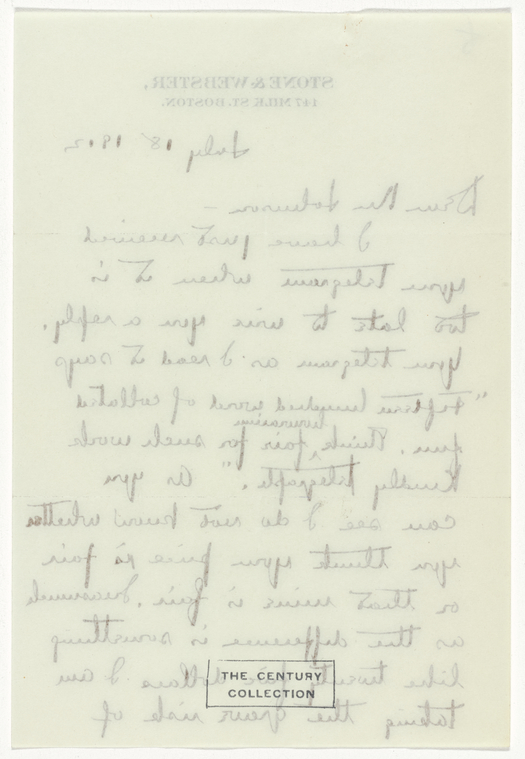 STONE & WEBSTER,
147 MILK ST. BOSTON.
July 18 1912
Dear Mr Johnson –
I have just received
your telegram when it is
too late to wire you a reply.
Your telegram as I read it says
"Fifteen hundred word of collated
fair, think fair for such work
Kindly telegraph." As you
can see I do not know whether
you think your price is fair
or that mine is fair. Inasmuch
as the difference is something
like twenty five dollars I am
taking the grave risk of
THE CENTURY
COLLECTION